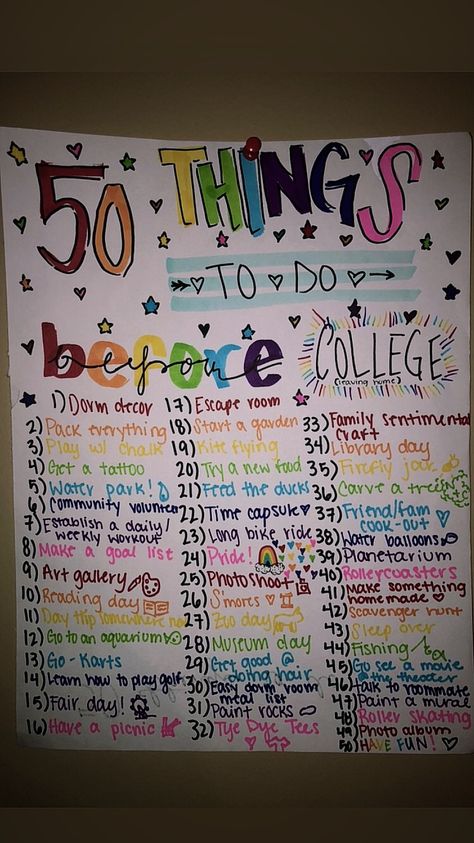 50 THINGS
TO DO
before
COLLEGE
(leaving home)
1) Dorm decor
2) Pack everything
3) Play w/ chalk
4) Get a tattoo
5) Water park!
6) Community volunteer
7) Establish a daily/
weekly workout
8) Make a goal list
9) Art gallery
10) Reading day
11) Day trip somewhere new
12) Go to an aquarium
13) Go-Karts
14) Learn how to play golf
15) Fair day!
16) Have a picnic
17) Escape room
18) Start a garden
19) Kite flying
20) Try a new food
21) Feed the ducks
22) Time capsule
23) Long bike ride
24) Pride!
25) Photoshoot
26) S'mores
27) Zoo day
28) Museum day
29) Get good @
doing hair
30) Easy dorm room
meal list
31) Paint rocks
32) Tye Dye Tees
33) Family sentimental
craft
34) Library day
35) Firefly jar
36) Carve a tree
37) Friend/fam
cook-out
38) Water balloons
39) Planetarium
40) Rollercoasters
41) Make something
homemade
42) Scavenger hunt
43) Sleep over
44) Fishing
45) Go see a movie
@ the theater
46) talk to roommate
47) Paint a mural
48) Roller skating
49) Photo album
50) HAVE FUN!